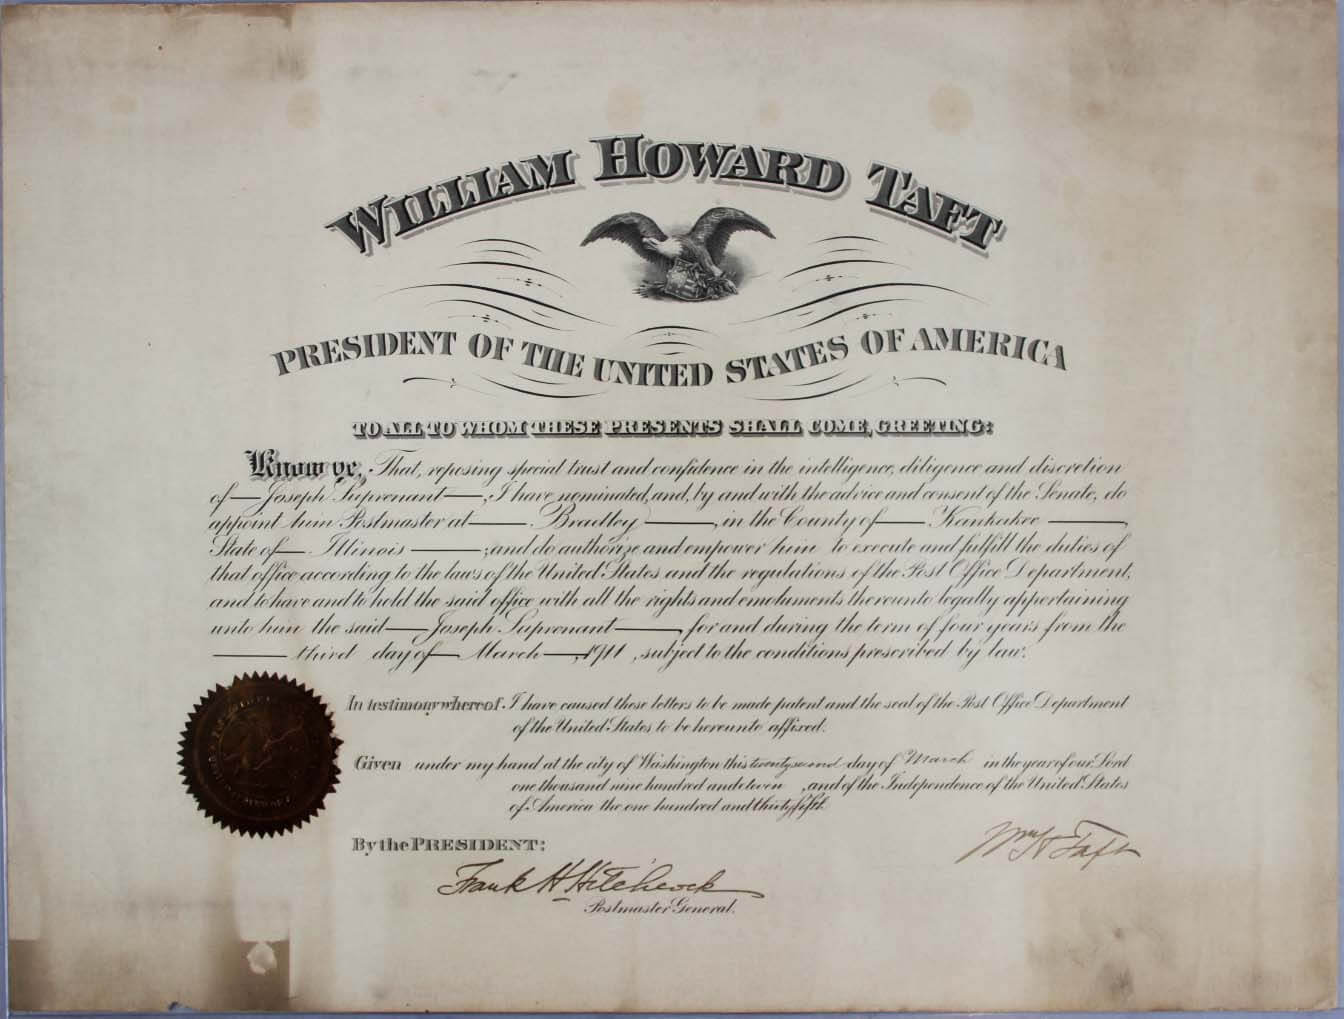 WILLIAM HOWARD TAFT
PRESIDENT OF THE UNITED STATES OF AMERICA
TO ALL TO WHOM THESE PRESENTS SHALL COME, GREETING:
Know ye, That, reposing special trust and confidence in the intelligence, diligence and discretion
of Joseph Suprenant, I have nominated, and, by and with the advice and consent of the Senate, do
appoint him Postmaster at Bradley, in the County of Kankakee,
State of Illinois; and do authorize and empower him to execute and fulfill the duties of
that office according to the laws of the United States and the regulations of the Post Office Department,
and to have and to hold the said office with all the rights and emoluments thereunto legally appertaining
unto him the said Joseph Suprenant, for and during the term of four years from the
third day of March, 1911, subject to the conditions prescribed by law.
In testimony whereof I have caused these letters to be made patent and the seal of the Post Office Department
of the United States to be hereunto affixed.
Given under my hand at the city of Washington this twenty second day of March in the year of our Lord
one thousand nine hundred and eleven, and of the Independence of the United States
of America the one hundred and thirty fifth.
By the PRESIDENT:
Wm H Taft
Frank H Hitchcock
Postmaster General.